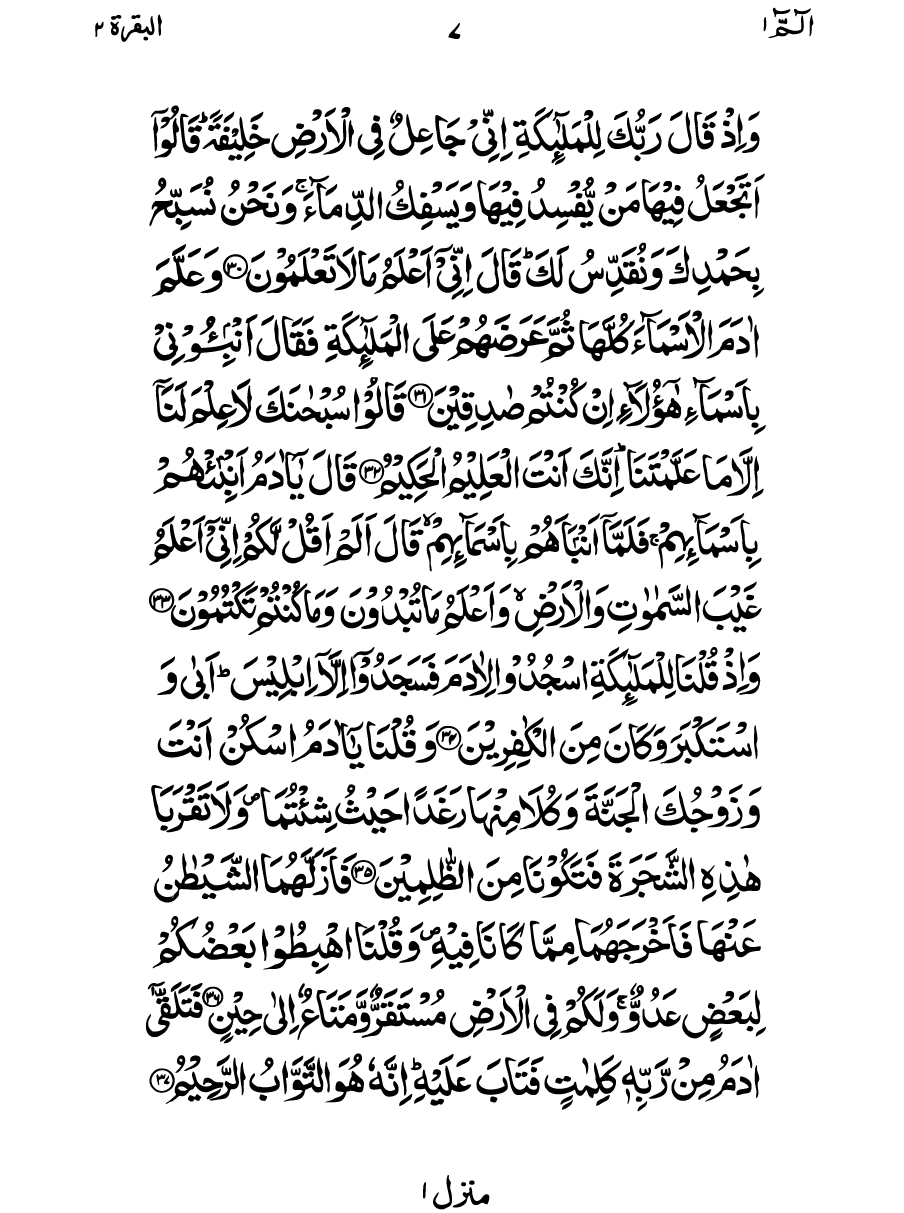 الٓـمّٓ ١
٧
البقرة ٢
وَاِذْ قَالَ رَبُّكَ لِلْمَلٰٓئِكَةِ اِنِّىْ جَاعِلٌ فِى الْاَرْضِ خَلِيْفَةً ؕ قَالُوْٓا
اَتَجْعَلُ فِيْهَا مَنْ يُّفْسِدُ فِيْهَا وَيَسْفِكُ الدِّمَآءَ ۚ وَنَحْنُ نُسَبِّحُ
بِحَمْدِكَ وَنُقَدِّسُ لَكَ ؕ قَالَ اِنِّىْٓ اَعْلَمُ مَا لَا تَعْلَمُوْنَ ۝٣٠ وَعَلَّمَ
اٰدَمَ الْاَسْمَآءَ كُلَّهَا ثُمَّ عَرَضَهُمْ عَلَى الْمَلٰٓئِكَةِ فَقَالَ اَنْۢبِـُٔوْنِىْ
بِاَسْمَآءِ هٰٓؤُلَآءِ اِنْ كُنْتُمْ صٰدِقِيْنَ ۝٣١ قَالُوْا سُبْحٰنَكَ لَا عِلْمَ لَنَآ
اِلَّا مَا عَلَّمْتَنَا ؕ اِنَّكَ اَنْتَ الْعَلِيْمُ الْحَكِيْمُ ۝٣٢ قَالَ يٰٓاٰدَمُ اَنْۢبِئْهُمْ
بِاَسْمَآئِهِمْ ۚ فَلَمَّآ اَنْۢبَاَهُمْ بِاَسْمَآئِهِمْ ۙ قَالَ اَلَمْ اَقُلْ لَّكُمْ اِنِّىْٓ اَعْلَمُ
غَيْبَ السَّمٰوٰتِ وَالْاَرْضِ ۙ وَاَعْلَمُ مَا تُبْدُوْنَ وَمَا كُنْتُمْ تَكْتُمُوْنَ ۝٣٣
وَاِذْ قُلْنَا لِلْمَلٰٓئِكَةِ اسْجُدُوْا لِاٰدَمَ فَسَجَدُوْٓا اِلَّآ اِبْلِيْسَ ؕ اَبٰى وَ
اسْتَكْبَرَ وَكَانَ مِنَ الْكٰفِرِيْنَ ۝٣٤ وَ قُلْنَا يٰٓاٰدَمُ اسْكُنْ اَنْتَ
وَ زَوْجُكَ الْجَنَّةَ وَكُلَا مِنْهَا رَغَدًا حَيْثُ شِئْتُمَا ۪ وَلَا تَقْرَبَا
هٰذِهِ الشَّجَرَةَ فَتَكُوْنَا مِنَ الظّٰلِمِيْنَ ۝٣٥ فَاَزَلَّهُمَا الشَّيْطٰنُ
عَنْهَا فَاَخْرَجَهُمَا مِمَّا كَانَا فِيْهِ ۪ وَقُلْنَا اهْبِطُوْا بَعْضُكُمْ
لِبَعْضٍ عَدُوٌّ ۚ وَلَكُمْ فِى الْاَرْضِ مُسْتَقَرٌّ وَّمَتَاعٌ اِلٰى حِيْنٍ ۝٣٦ فَتَلَقّٰٓى
اٰدَمُ مِنْ رَّبِّهٖ كَلِمٰتٍ فَتَابَ عَلَيْهِ ؕ اِنَّهٗ هُوَ التَّوَّابُ الرَّحِيْمُ ۝٣٧
منزل ١